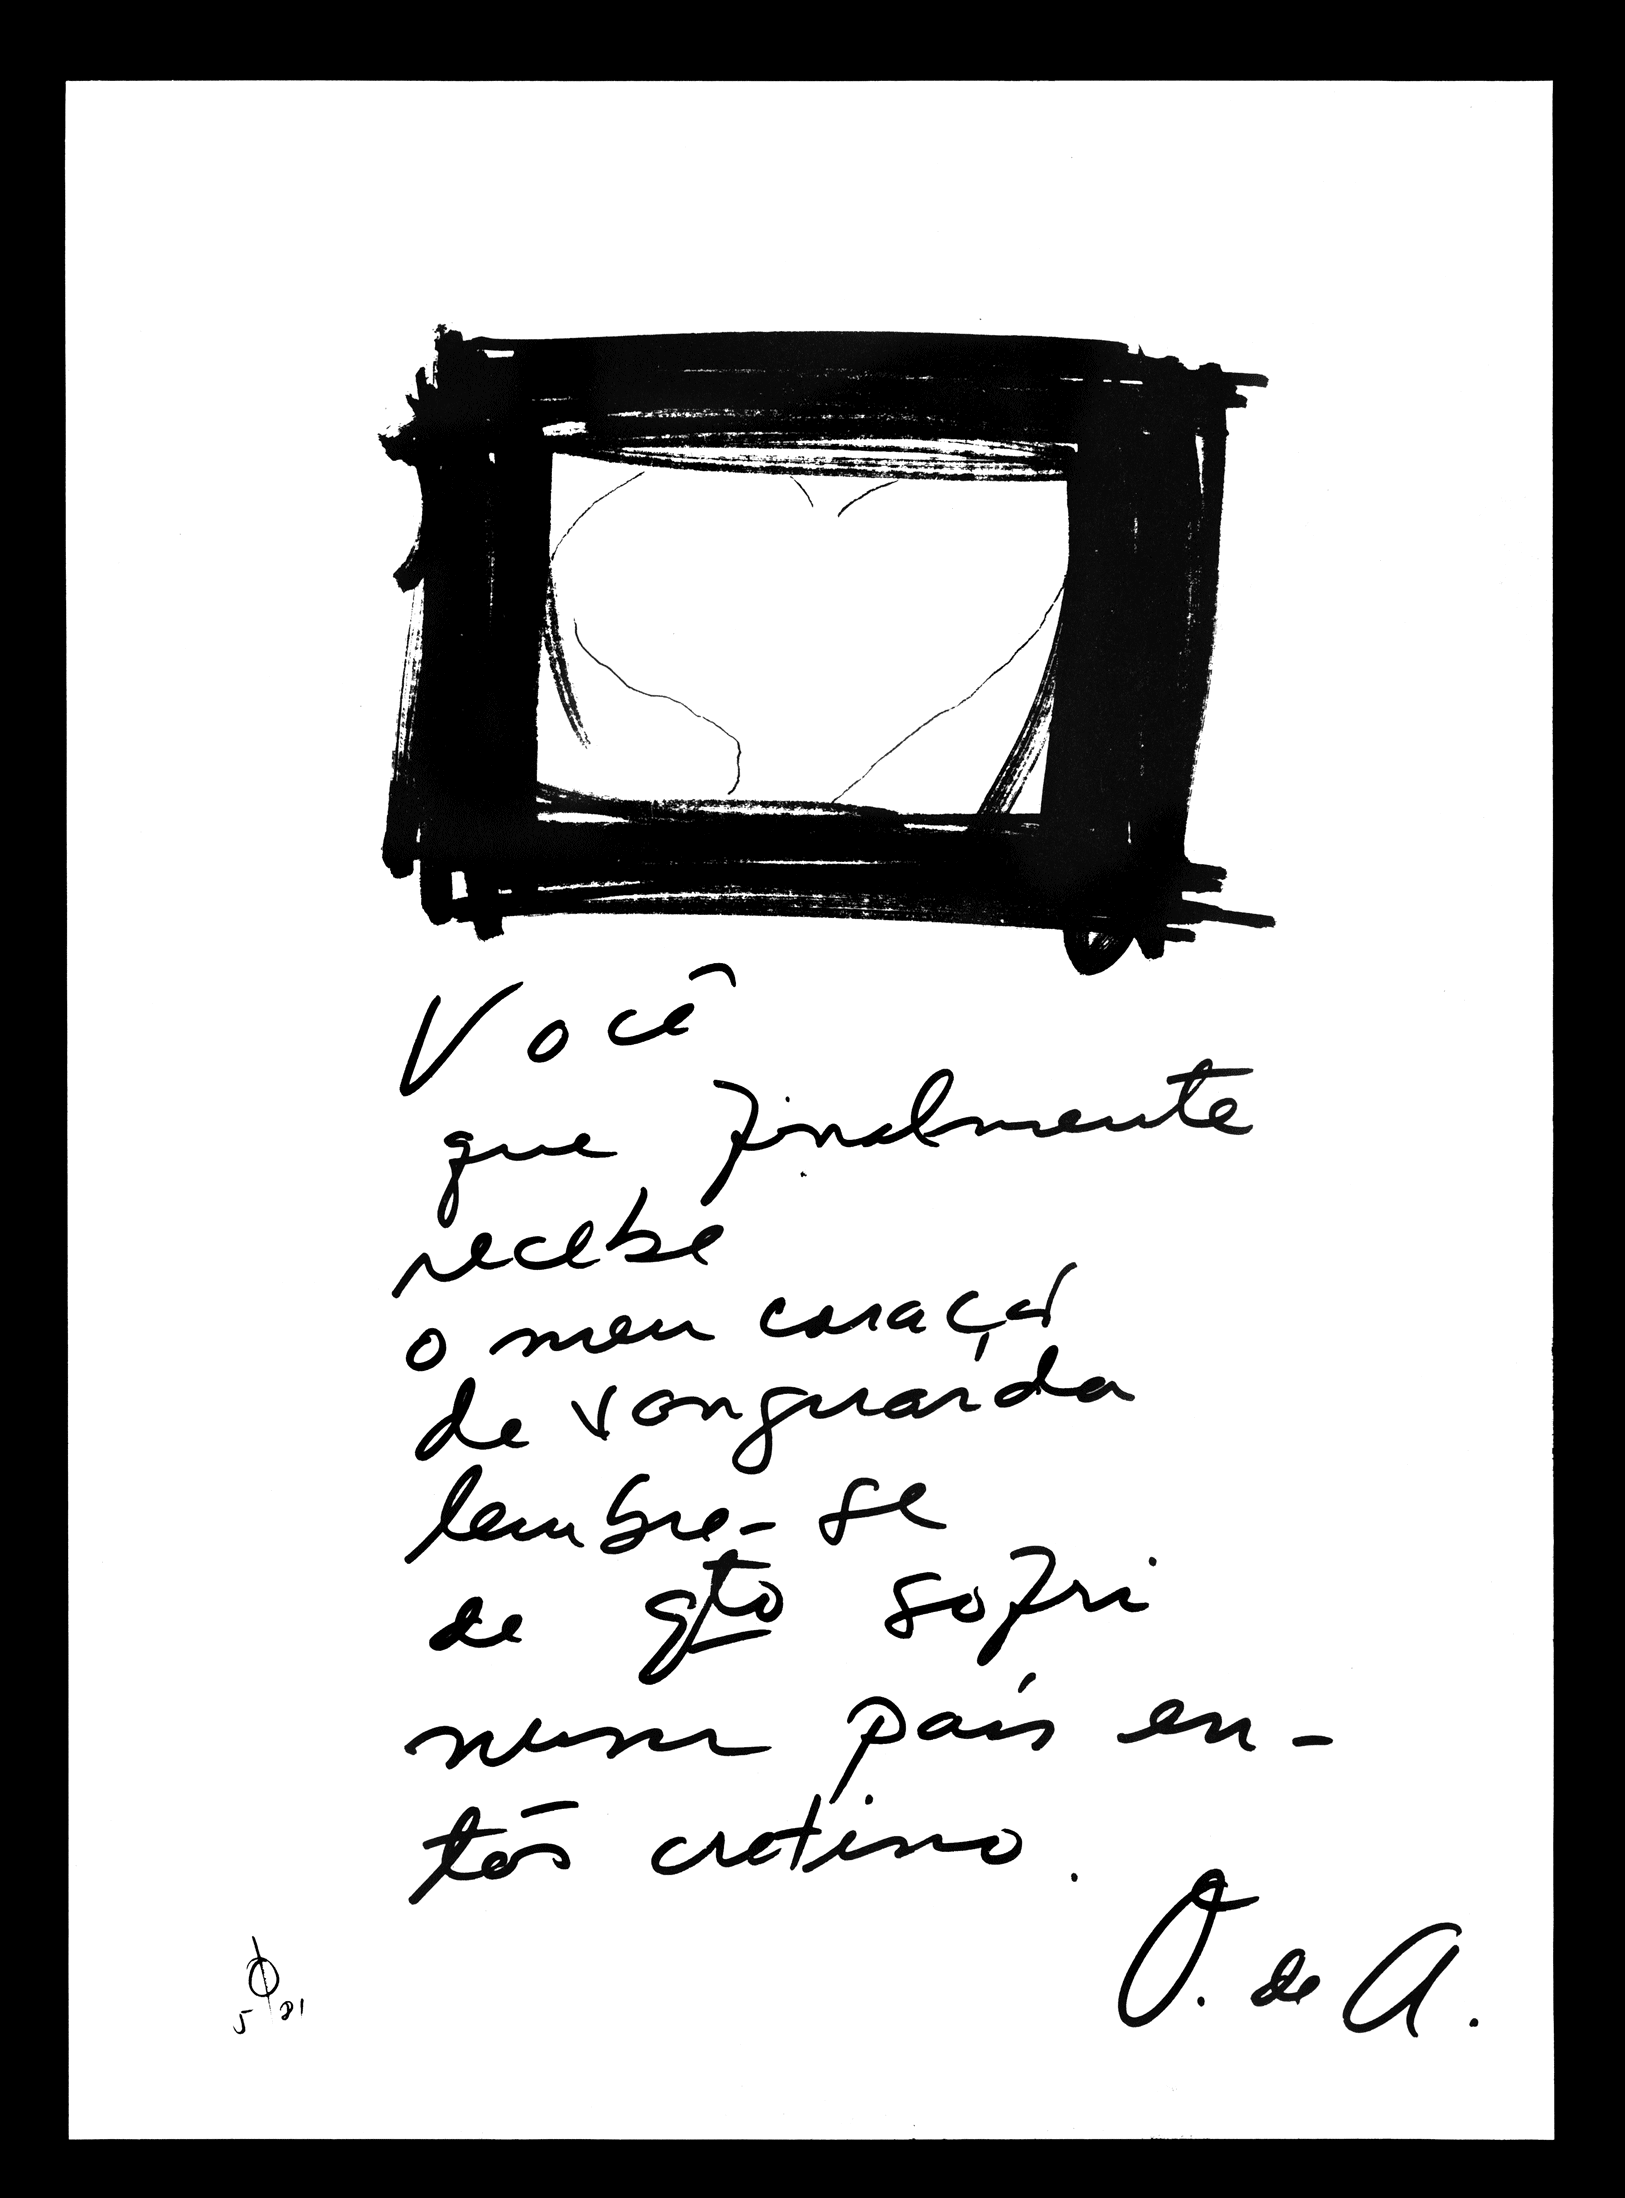 Você
que finalmente
recebe
o meu coraçã
de vanguarda
lembre-se
de qto sofri
num país en-
tão cretino.
O. de A.
5 81